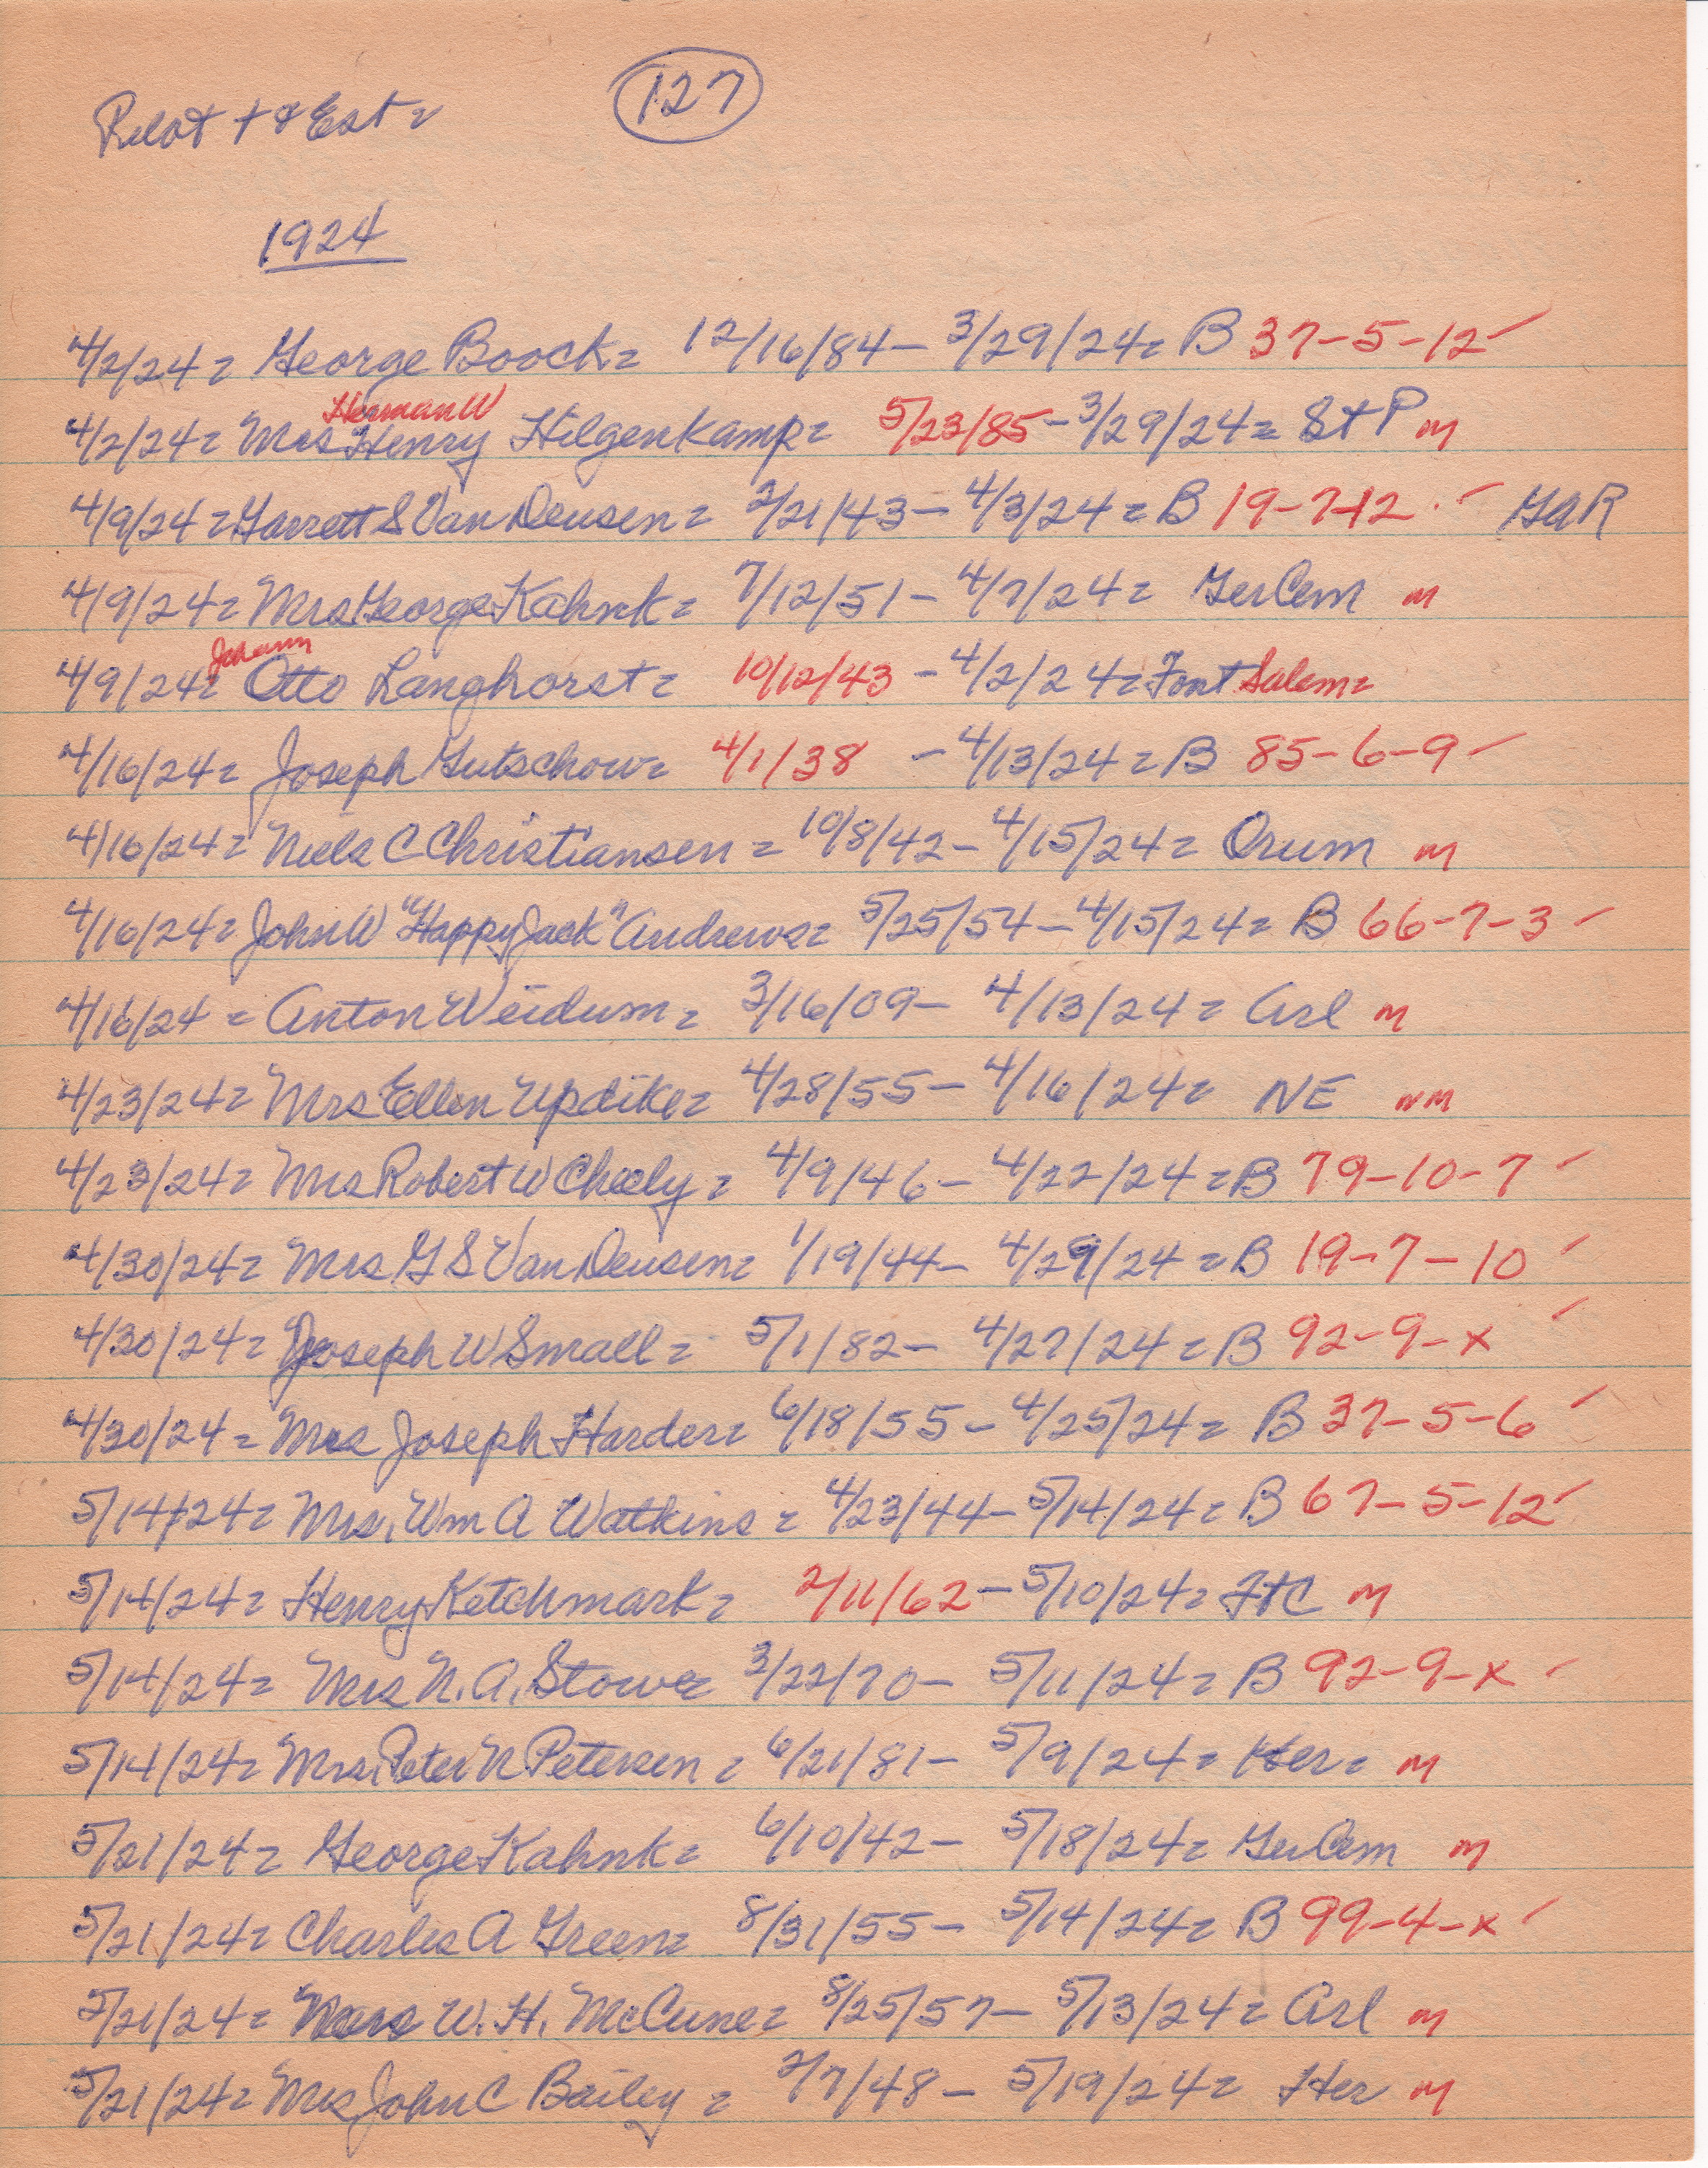 Pilot + & Est =
127
1924
4/2/24 = George Boock = 12/16/84 - 3/29/24 = B 37-5-12 ✓
Herman W
4/2/24 = Mrs Henry Hilgenkamp = 5/23/85 - 3/29/24 = St P m
4/9/24 = Garrett S Van Deusen = 2/21/43 - 4/3/24 = B 19-7-12 ✓ GAR
4/9/24 = Mrs George Kahnk = 7/12/51 - 4/7/24 = Ger Cem m
Johann
4/9/24 = Otto Langhorst = 10/12/43 - 4/2/24 = Font Salem =
4/16/24 = Joseph Gutschow = 4/1/38 - 4/13/24 = B 85-6-9 ✓
4/16/24 = Niels C Christiansen = 10/8/42 - 4/15/24 = Orum m
4/16/24 = John W "Happy Jack" Andrews = 5/25/54 - 4/15/24 = B 66-7-3 ✓
4/16/24 = Anton Weidum = 3/16/09 - 4/13/24 = Arl m
4/23/24 = Mrs Ellen Updike = 4/28/55 - 4/16/24 = NE nm
4/23/24 = Mrs Robert W Cheely = 4/9/46 - 4/22/24 = B 79-10-7 ✓
4/30/24 = Mrs G S Van Deusen = 1/19/44 - 4/29/24 = B 19-7-10 ✓
4/30/24 = Joseph W Small = 5/1/82 - 4/27/24 = B 92-9-x ✓
4/30/24 = Mrs Joseph Harder = 6/18/55 - 4/25/24 = B 37-5-6 ✓
5/14/24 = Mrs. Wm A Watkins = 4/23/44 - 5/14/24 = B 67-5-12 ✓
5/14/24 = Henry Ketchmark = 2/11/62 - 5/10/24 = FtC m
5/14/24 = Mrs N. A. Stower 3/22/70 - 5/11/24 = B 92-9-x ✓
5/14/24 = Mrs. Peter N Petersen = 6/21/81 - 5/9/24 = Her = m
5/21/24 = George Kahnk = 6/10/42 - 5/18/24 = Ger Cem m
5/21/24 = Charles A Green = 8/31/55 - 5/14/24 = B 99-4-x ✓
5/21/24 = W. H. McCune = 8/25/57 - 5/13/24 = Arl m
5/21/24 = Mrs John C Bailey = 2/7/48 - 5/19/24 = Her m